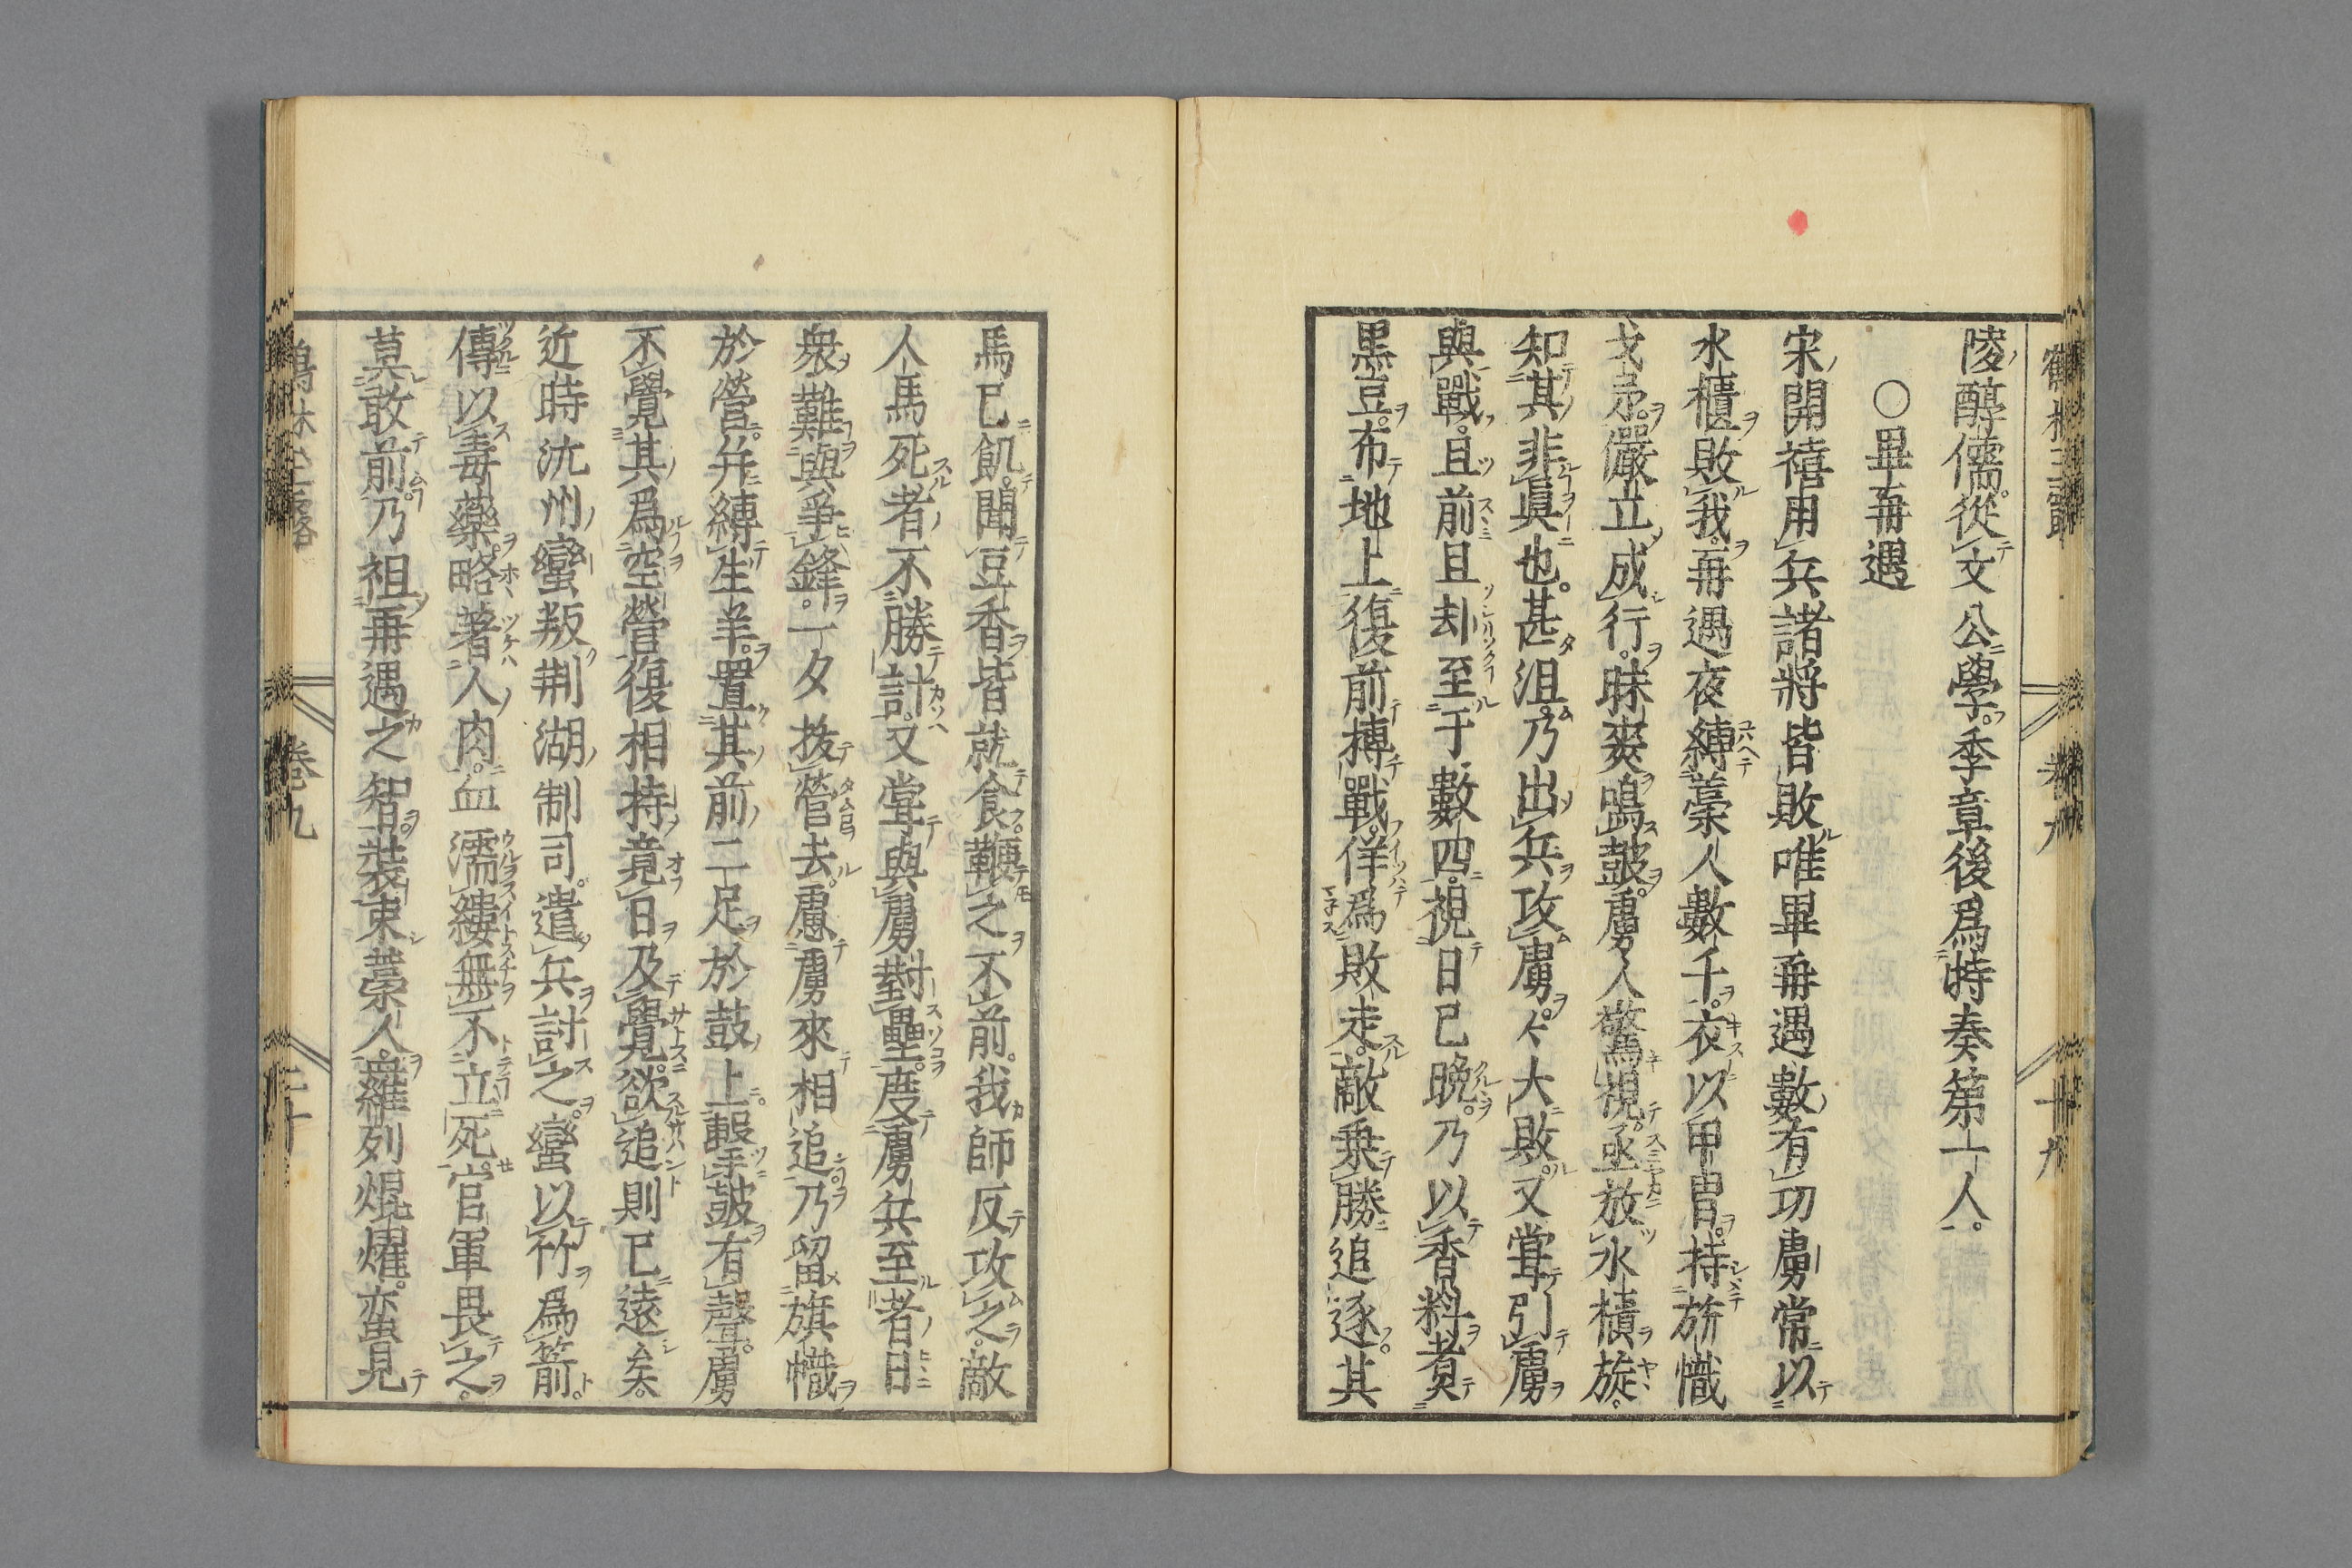 陵醇儒從文公學季章後爲特奏第一人
○畢再遇
宋開禧用兵諸將皆敗唯畢再遇數有功虜常以
水櫃敗我再遇夜縛藁人數千衣以甲冑持旂幟
戈矛儼立成行昧爽鳴鼓虜人驚視亟放水櫃旋
知其非眞也甚沮乃出兵攻虜々大敗又甞引虜
與戰且前且却至于數四視日已晚乃以香料煮
黒豆布地上復前搏戰佯爲敗走敵乗勝追逐其
馬已飢聞豆香皆就食鞭之不前我師反攻之敵
人馬死者不勝計又甞與虜對壘度虜兵至者日
衆難與爭鋒一夕拔營去慮虜來相追乃留旗幟
於營并縛生羊置其前二足於鼓上擊鼓有聲虜
不覺其爲空營復相持竟日及覺欲追則已遠矣
近時沅州蠻叛荆湖制司遣兵討之蠻以竹爲箭
傳以毒藥略著人肉血濡縷無不立死官軍畏之
莫敢前乃祖再遇之智裝束藁人羅列焜燿蛮見
卷九
二十